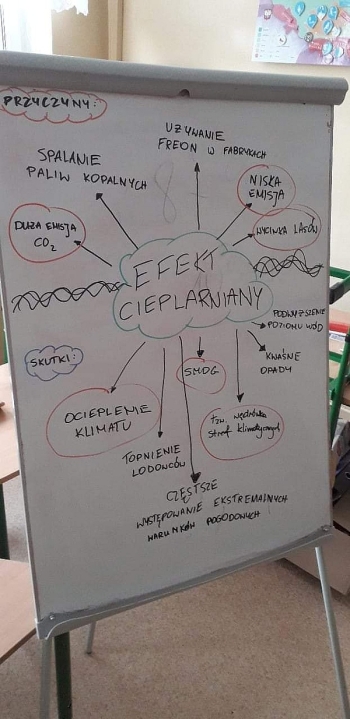 PRZYCZYNY:
UŻYWANIE
FREON W FABRYKACH
SPALANIE
PALIW KOPALNYCH
NISKA
EMISJA
DUŻA EMISJA
CO2
WYCINKA LASÓW
EFEKT
CIEPLARNIANY
PODWYŻSZENIE
POZIOMU WÓD
SKUTKI:
KWAŚNE
OPADY
SMOG
OCIEPLENIE
KLIMATU
tzw. wędrówka
stref klimatycznych
TOPNIENIE
LODOWCÓW
CZĘSTSZE
WYSTĘPOWANIE EKSTREMALNYCH
WARUNKÓW POGODOWYCH